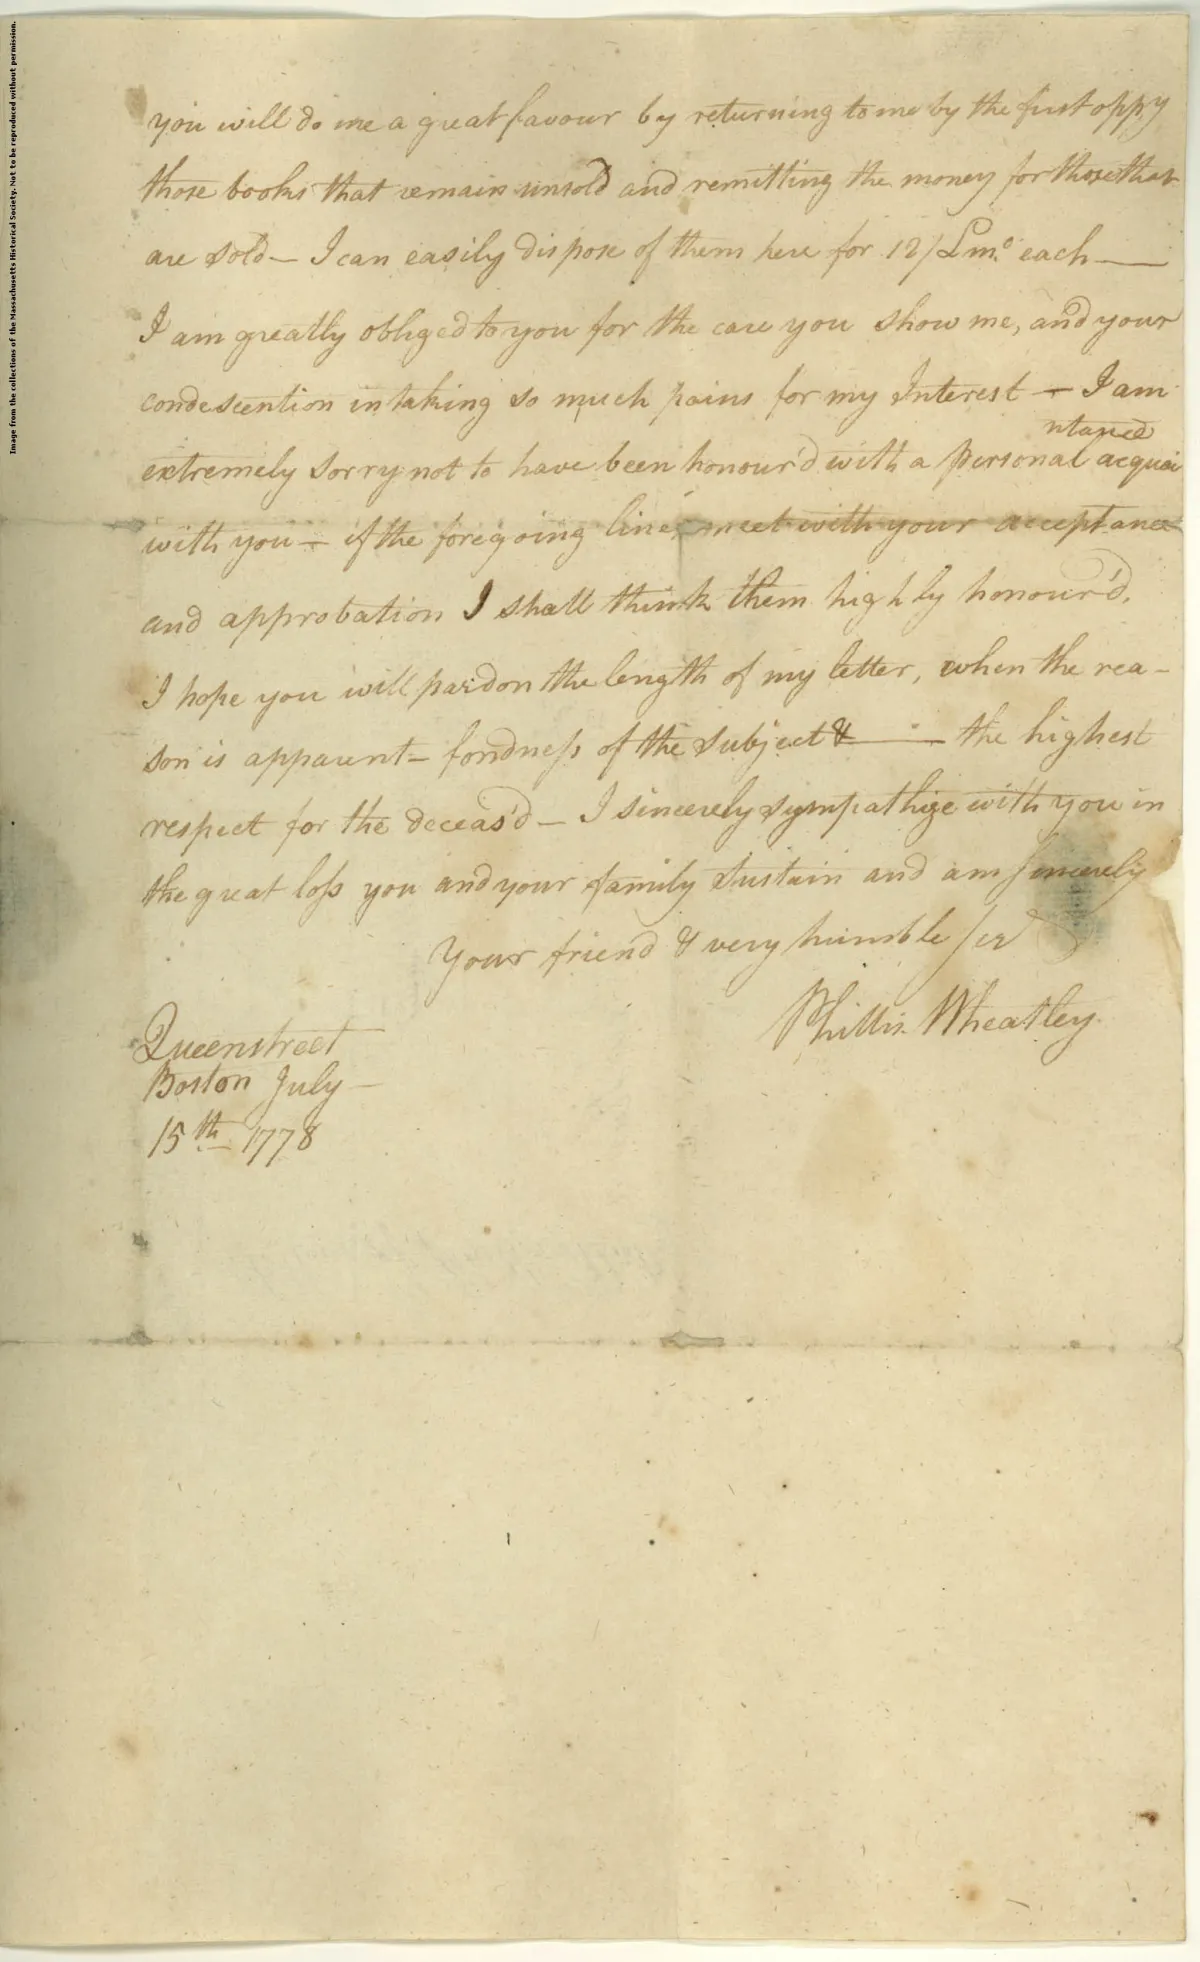 you will do me a great favour by returning to me by the first oppy
those books that remain unsold and remitting the money for those that
are sold— I can easily dispose of them here for 12/Lmo. each—
I am greatly obliged to you for the care you show me, and your
condescention in taking so much pains for my Interest — I am
extremely sorry not to have been honour'd with a personal acquai
ntance
with you — if the foregoing lines meet with your acceptance
and approbation I shall think them highly honour'd.
I hope you will pardon the length of my letter, when the rea-
son is apparent— fondness of the subject & — the highest
respect for the deceas'd— I sincerely sympathize with you in
the great loss you and your family sustain and am sincerely
Your friend & very humble servt
Phillis Wheatley.
Queenstreet
Boston July—
15th 1778
Image from the collections of the Massachusetts Historical Society. Not to be reproduced without permission.